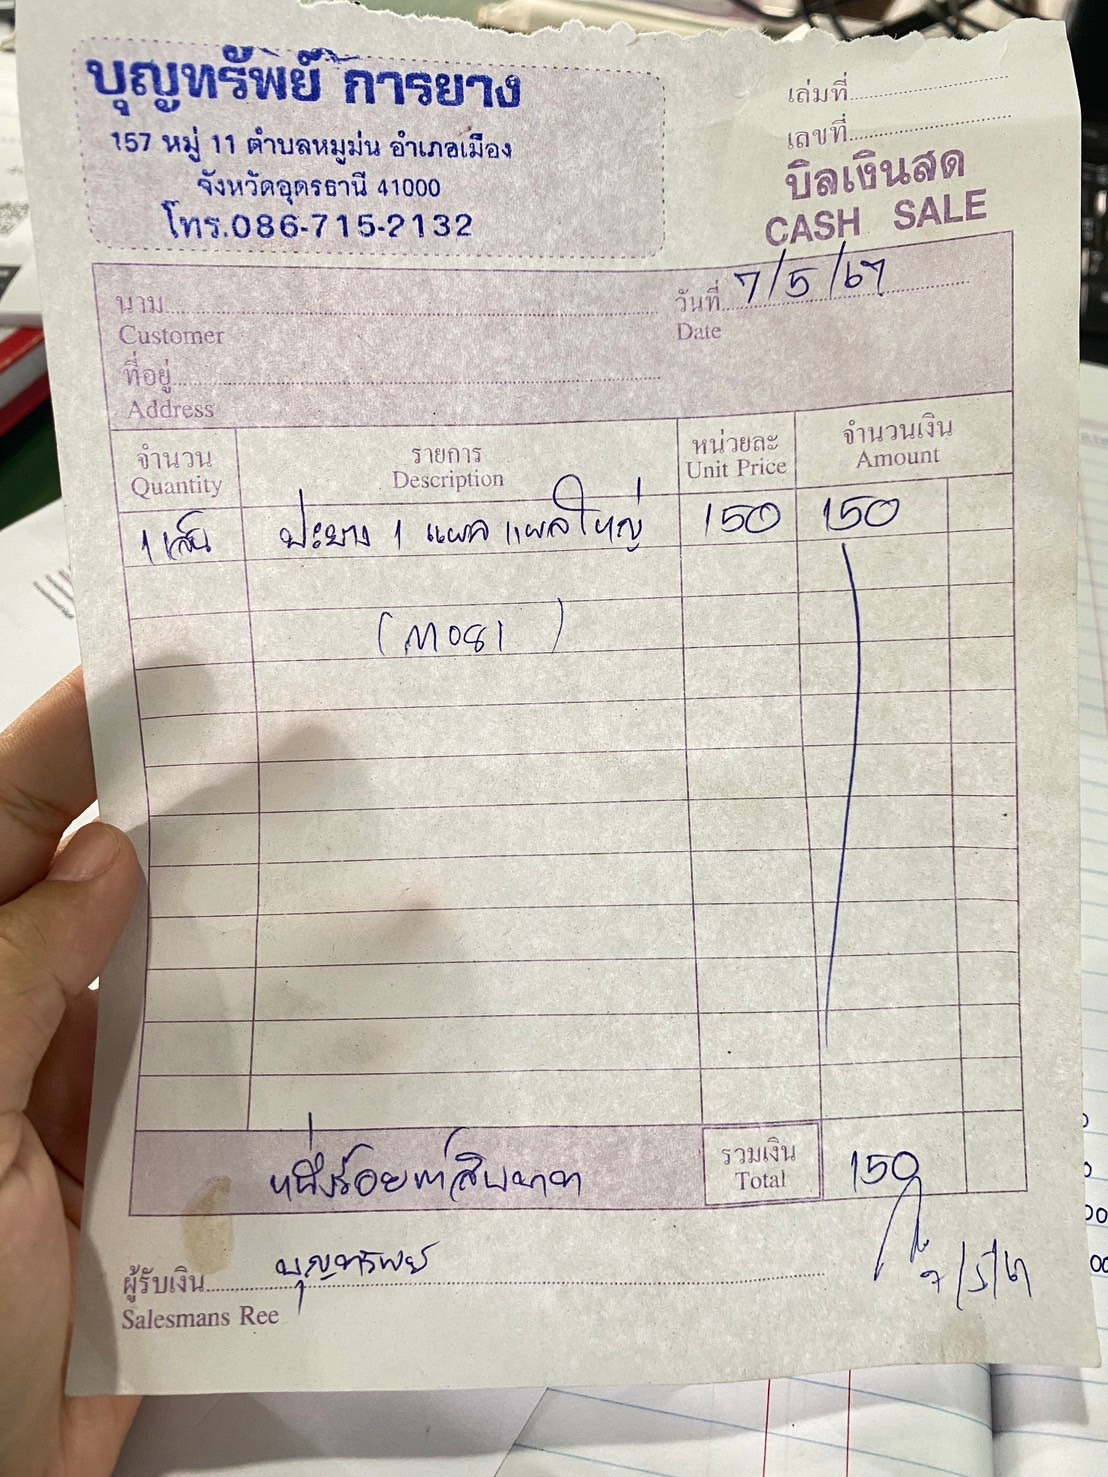 บุญทรัพย์ การยาง
157 หมู่ 11 ตำบลหมูม่น อำเภอเมือง
จังหวัดอุดรธานี 41000
โทร.086-715-2132
เล่มที่
เลขที่
บิลเงินสด
CASH SALE
นาม
Customer
วันที่ 7/5/67
Date
ที่อยู่
Address
จำนวน รายการ หน่วยละ จำนวนเงิน
Quantity Description Unit Price Amount
1 เส้น ปะยาง 1 แผล แผลใหญ่ 150 150
(M081)
หนึ่งร้อยห้าสิบบาท รวมเงิน 150
Total
ผู้รับเงิน บุญทรัพย์
Salesmans Ree
7/5/67